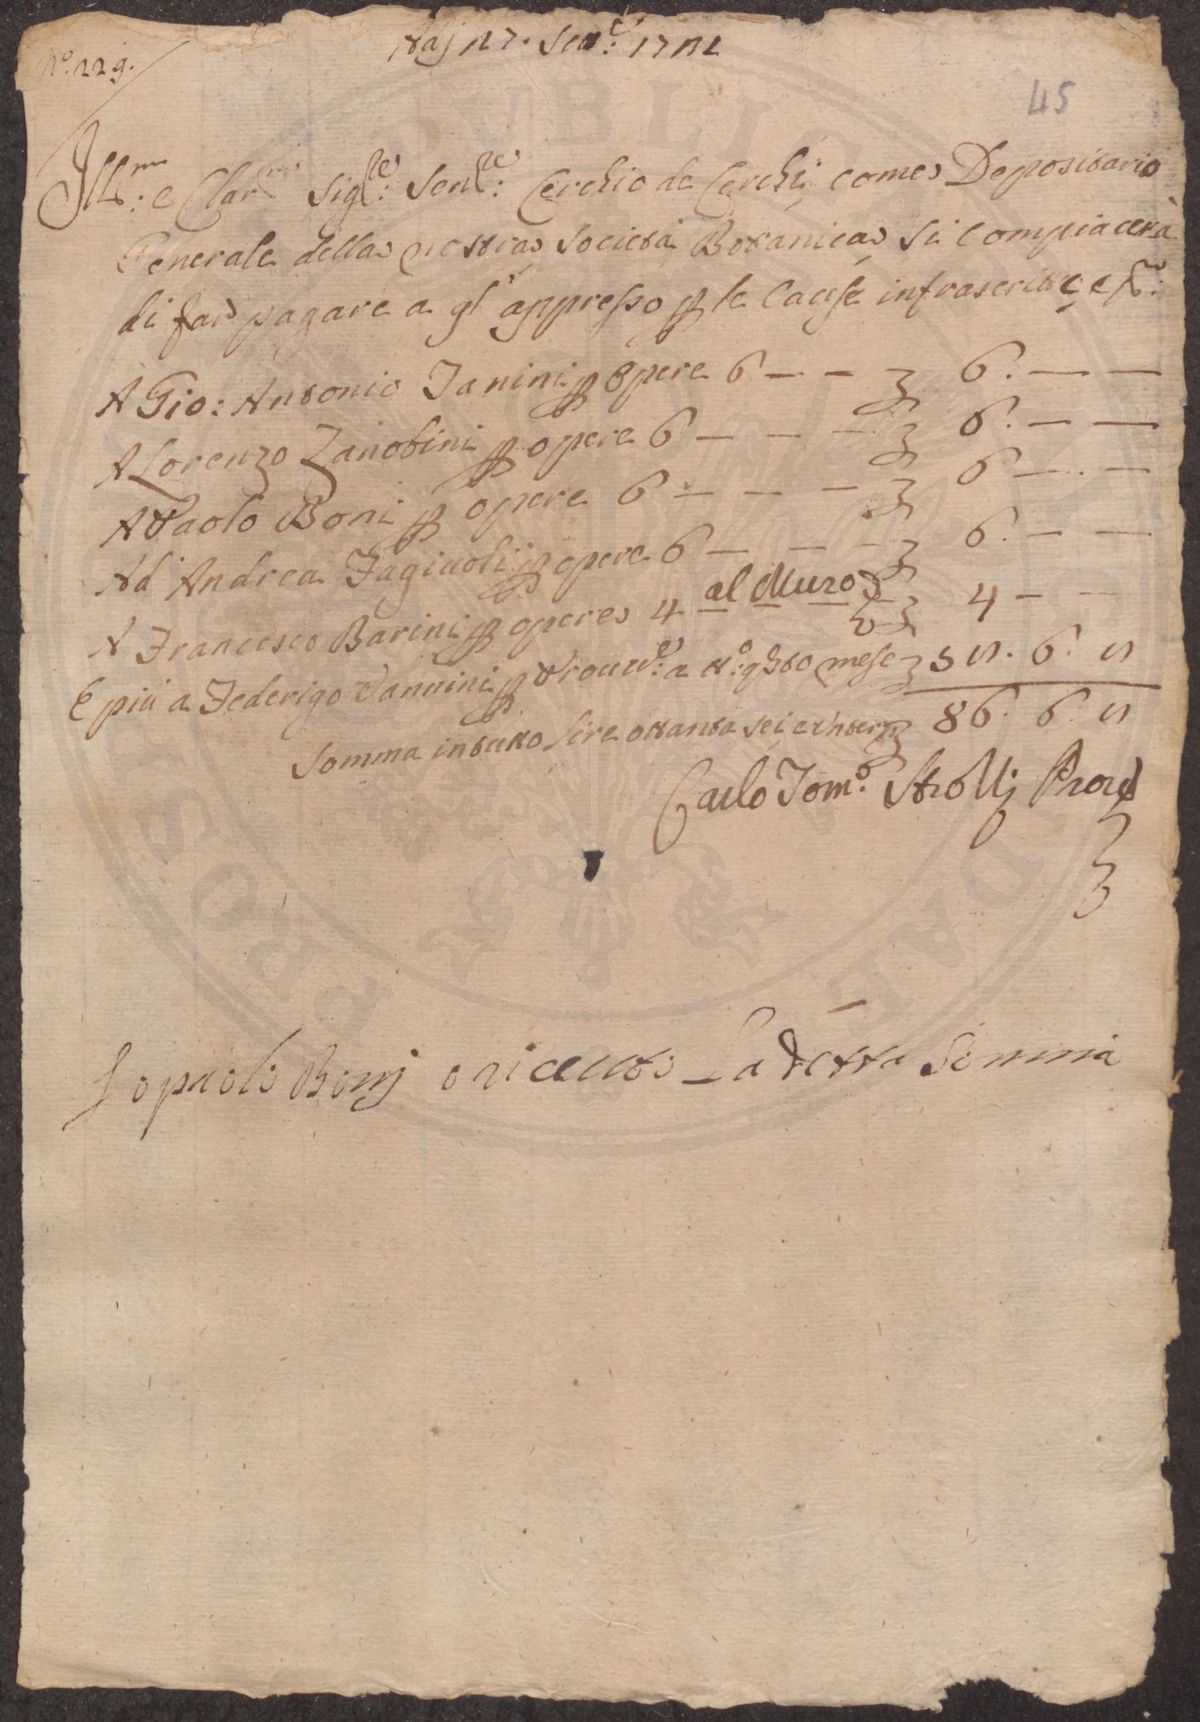 Adj 27. Sett.e 1721
N.o 229.
45
Ill.mo e Clar.mo Sig.re Sen.re Cerchio de Cerchi come Depositario
Generale della nostra Società Botanica si compiacerà
di far pagare a gl' appresso p le Cause infrascritte e
A Gio: Antonio Janini p opere 6 — — 6. — —
A Lorenzo Zanobini p opere 6 — — — 6. — —
A Paolo Boni p opere 6 — — — 6 — . —
Ad Andrea Fagiuoli p opere 6 — — — 6. — —
A Francesco Barini p opere 4 al Muro 4 — —
E più a Federigo Vannini p Provv.e a N.o qsto mese
Somma in tutto lire ottanta sei 86. 6.
Carlo Tom.o Strozzi Prov.e
Io paolo Bonj o riceuto La detta Somma
PUBLICAE
PROS